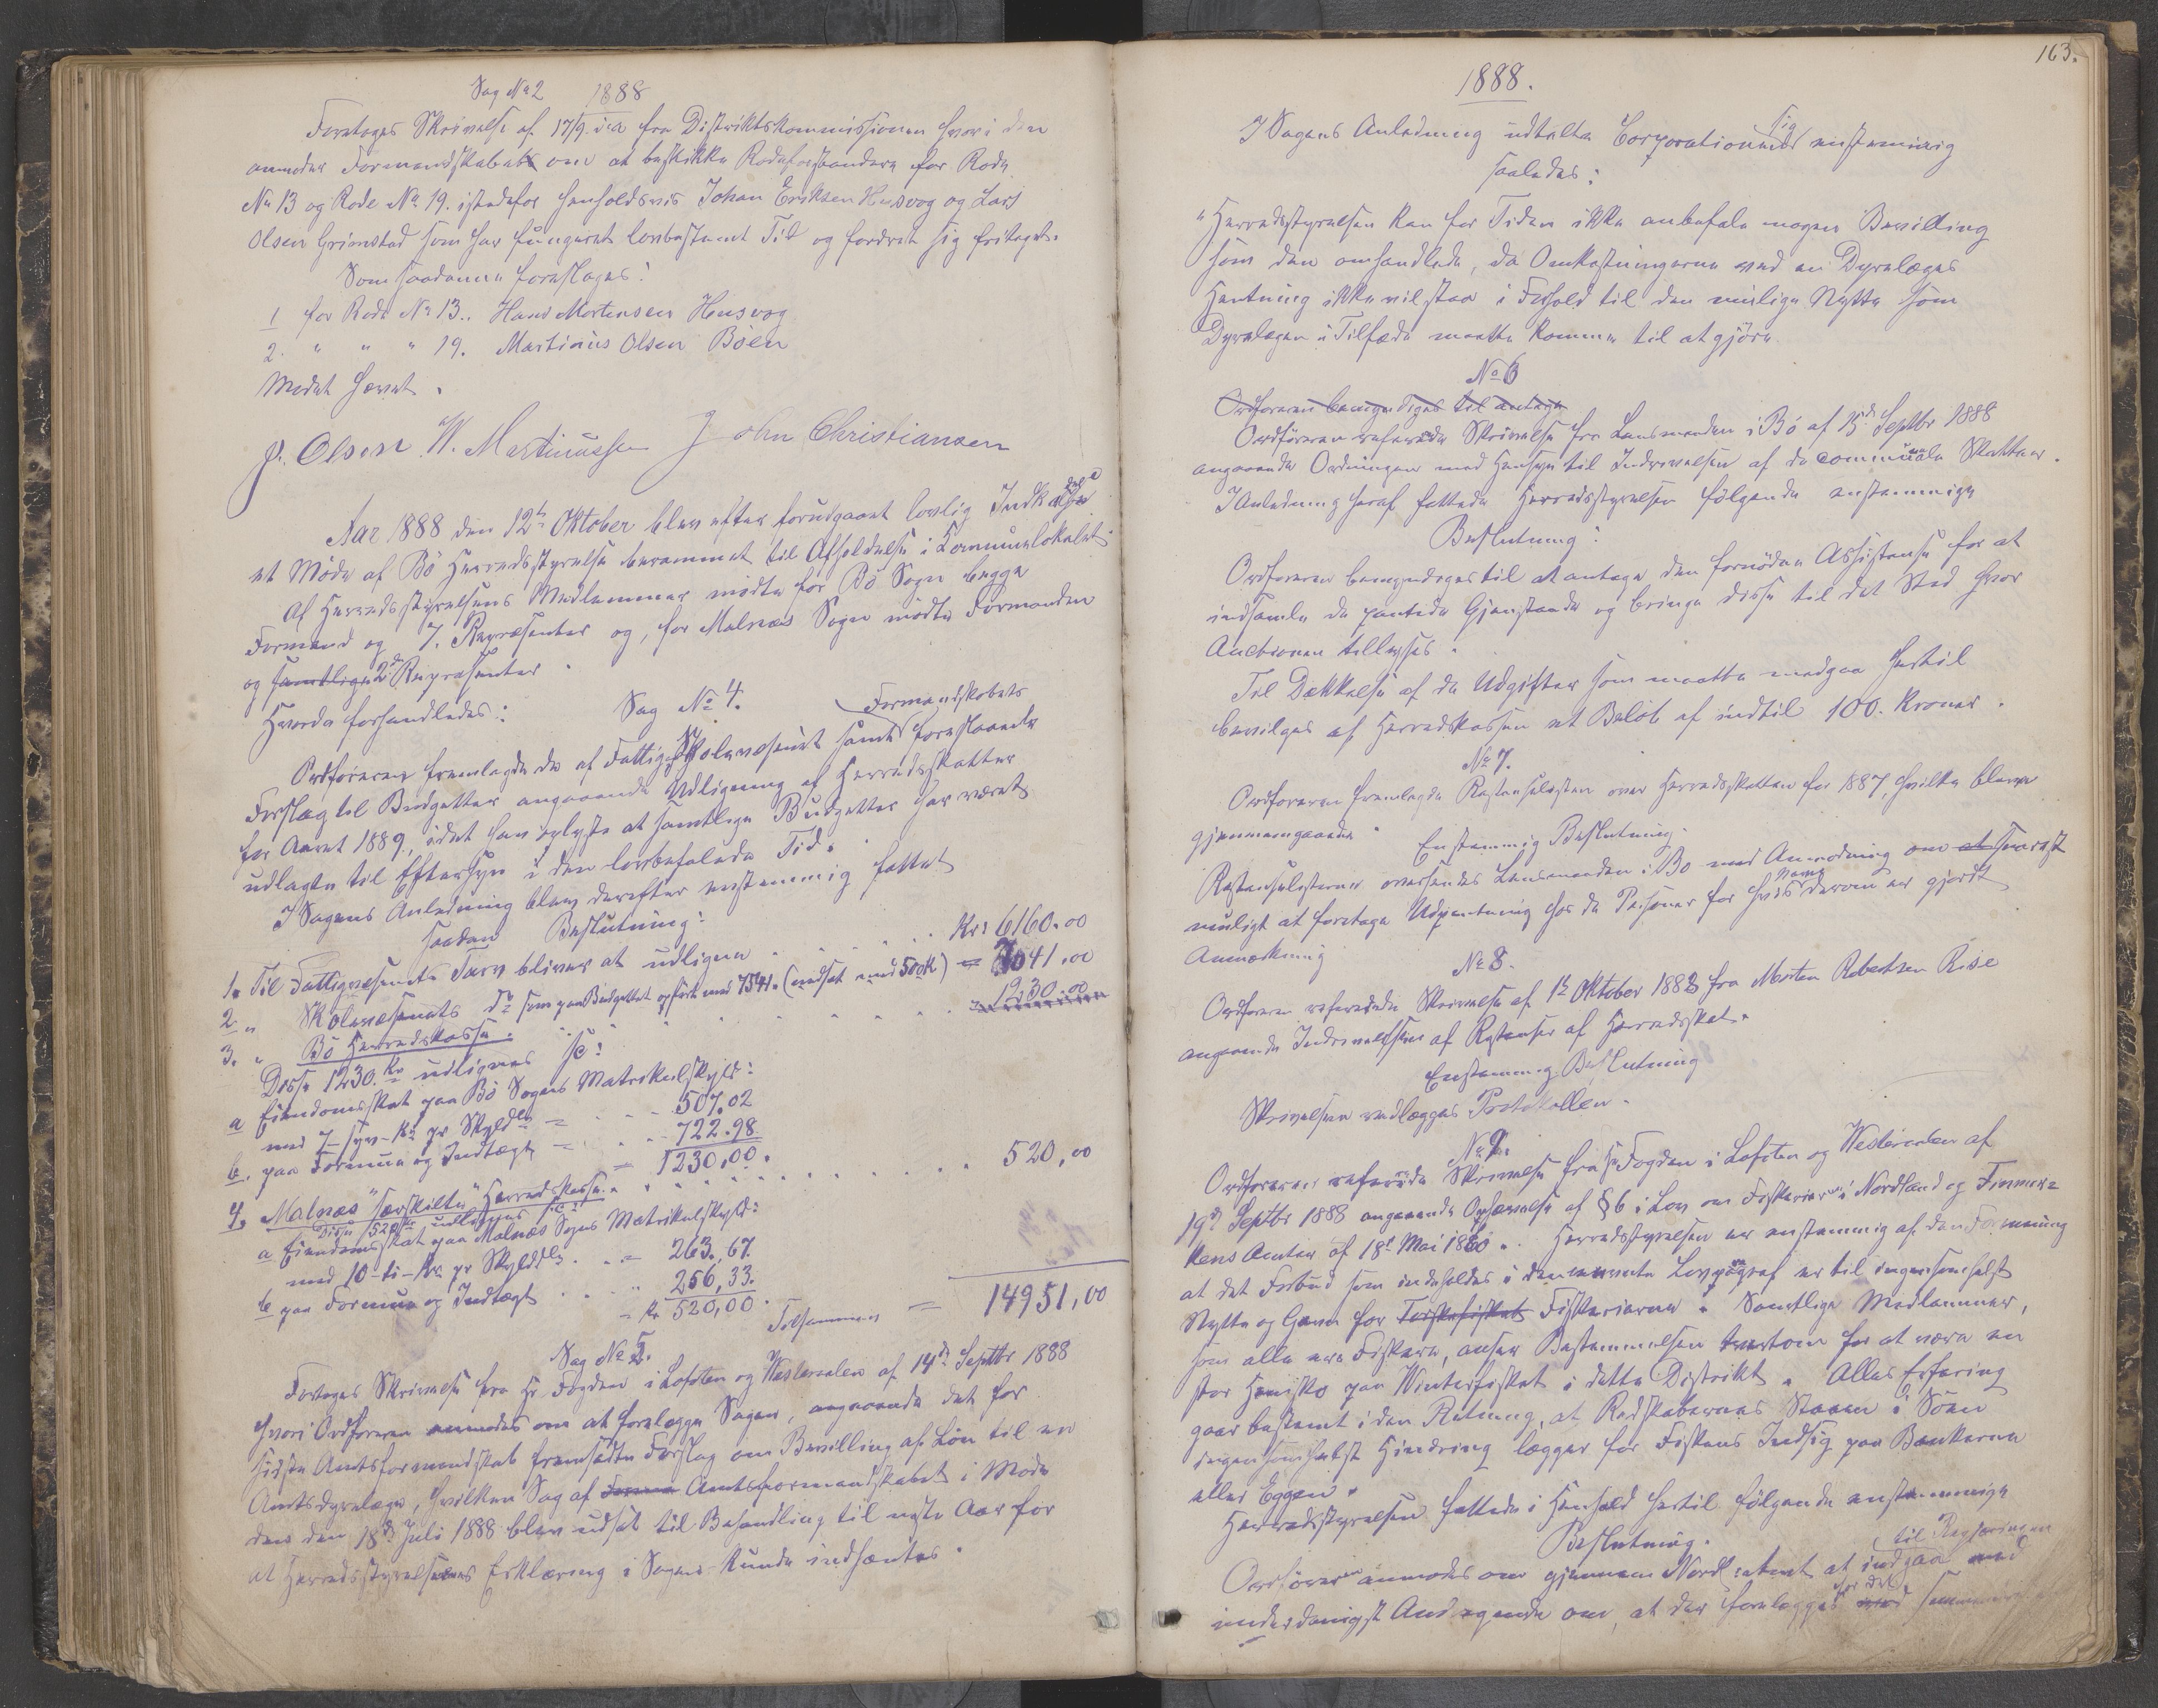 Sag No 2 1888
Foretoges Skrivelse af 17/9 d.a. fra Distriktskommissionen hvori den
anmoder Formandskabet om at beskikke Rodeforstandere for Rode
No 13 og Rode No 19. istedefor henholdsvis Johan Eriksen Husvog og Lars
Olsen Grimstad som har fungeret lovbestemt Tid og fordret sig fritaget.
Som saadanne foreslages:
1 for Rode No 13. Hans Mortensen Husvog
2. " " " 19. Martinus Olsen Böen
Mödet hævet.
J. Olsen W. Martinussen John Christiansen
Aar 1888 den 12te Oktober blev efter forudgaaet lovlig Indkaldelse
et Möde af Bö Herredsstyrelse berammet til Afholdelse i Kommunelokalet.
Af Herredsstyrelsens Medlemmer mödte for Bö Sogn begge
Formænd og 7. Repræsenter og, for Malnæs Sogn mödte Formanden
og samtlige 2de Repræsenter.
Hvorda forhandledes: Sag No 4. Formandskabets
Ordföreren fremlagde de af Fattig Skolevæsenet samt foreslaaede
Forslag til Budgetter angaaende Udligning af Herredsskatter
for Aaret 1889, idet han oplyste at samtlige Budgetter har været
udlagte til Eftersyn i den lovbefalede Tid.
I Sagens Anledning blev derefter enstemmig fattet
saadan Beslutning:
1. Til Fattigvæsenets Tarv bliver at udligne . . . . Kr: 6160.00
2. " Skolevæsenets do som paa Budgettet opfört med 7541. (nedsat med 500 kr) = 7041.00
3. " Bö Herredskasse: . . . . . 1230.00
Disse 1230. Kr udlignes sc:
a Eiendomsskat paa Bö Sogns Matrikulskyld:
med 7 - syv - Kr pr Skyldlr = . . . 507.02
b. paa Formue og Indtægt = . . . 722.98
= 1230,00.
4. Malnæs "særskilte" Herredskasse . . . . 520,00
Disse 520 Kr udlignes sc:
a Eiendomsskat paa Malnæs Sogns Matrikulskyld:
med 10 - ti - Kr. pr Skyldlr . . = 263,67.
b paa Formue og Indtægt . . . " 256,33.
= Kr 520,00.
Tilsammen = 14951,00
Sag No 5.
Foretoges Skrivelse fra Hr. Fogden i Lofoten og Vesteraalen af 14de Septbr 1888
hvori Ordföreren anmodes om at forelægge Sagen, angaaende det for
sidste Amtsformandskab fremsatte Forslag om Bevilling af Lön til en
Amtsdyrlæge, hvilken Sag af Amtsformandskabet i Möde
den 18de Juli 1888 blev udsat til Behandling til næste Aar for
at Herredsstyrelsernes Erklæring i Sagen kunde indhentes.
163.
1888.
I Sagens Anledning udtalte Corporationen sig enstemmig
saaledes:
"Herredsstyrelsen kan for Tiden ikke anbefale nogen Bevilling
som den omhandlede, da Omkostningerne ved en Dyrlæges
Hentning ikke vil staa i Forhold til den mulige Nytte som
Dyrlægen i Tilfælde maatte komme til at gjöre.
No 6
Ordföreren bemyndiges til antage
Ordföreren refererede Skrivelse fra Lensmanden i Bö af 15de Septbr 1888
angaaende Ordningen med Hensyn til Inddrivelsen af de communale Skatter.
I Anledning heraf fattede Herredsstyrelsen fölgende enstemmige
Beslutning:
Ordföreren bemyndiges til at antage den fornödne Assistense for at
indsamle de pantede Gjenstande og bringe disse til det Sted hvor
Auctionen tillyses.
Til Dækkelse af de Udgifter som maatte medgaa hertil
bevilges af Herredskassen et Belöb af indtil 100. Kroner.
No 7.
Ordföreren fremlagde Restanselisten over Herredsskatten for 1887, hvilke bleve
gjennemgaaede. Enstemmig Beslutning.
Restanselisterne oversendes Lensmanden i Bö med Anmodning om at snarest
muligt at foretage Udpantning hos de Personer for hvis Navne derom er gjordt
Anmærkning
No 8.
Ordföreren refererede Skrivelse af 1te Oktober 1888 fra Morten Robertsen Rise
angaaende Inddrivelsen af Restanser af Herredsskat.
Enstemmig Beslutning
Skrivelsen vedlægges Protokollen.
No 9.
Ordföreren refererede Skrivelse fra Hr Fogden i Lofoten og Vesteraalen af
19de Septbr 1888 angaaende Ophævelse af § 6 i Lov om Fiskerier i Nordland og Finmar-
kens Amter af 18de Mai 1860. Herredsstyrelsen er enstemmig af den Formening
at det Forbud som indeholdes i den nævnte Lovparagraf er til ingensomhelst
Nytte og Gavn for Torskefisket Fiskerierne. Samtlige Medlemmer,
som alle ere Fiskere, anser Bestemmelsen tvertom for at være en
stor Hemsko paa Vinterfisket i dette Distrikt. Alles Erfaring
gaar bestemt i den Retning, at Redskabernes Staaen i Söen
ingensomhelst Hindring lægger for Fiskens Indsig paa Bankerne
eller Eggen.
Herredsstyrelsen fattede i Henhold hertil fölgende enstemmige
Beslutning.
Ordföreren anmodes om gjennem Nordl. Amt at indgaa til Regjeringen med
underdanigst Andragende om, at der forelægges for det